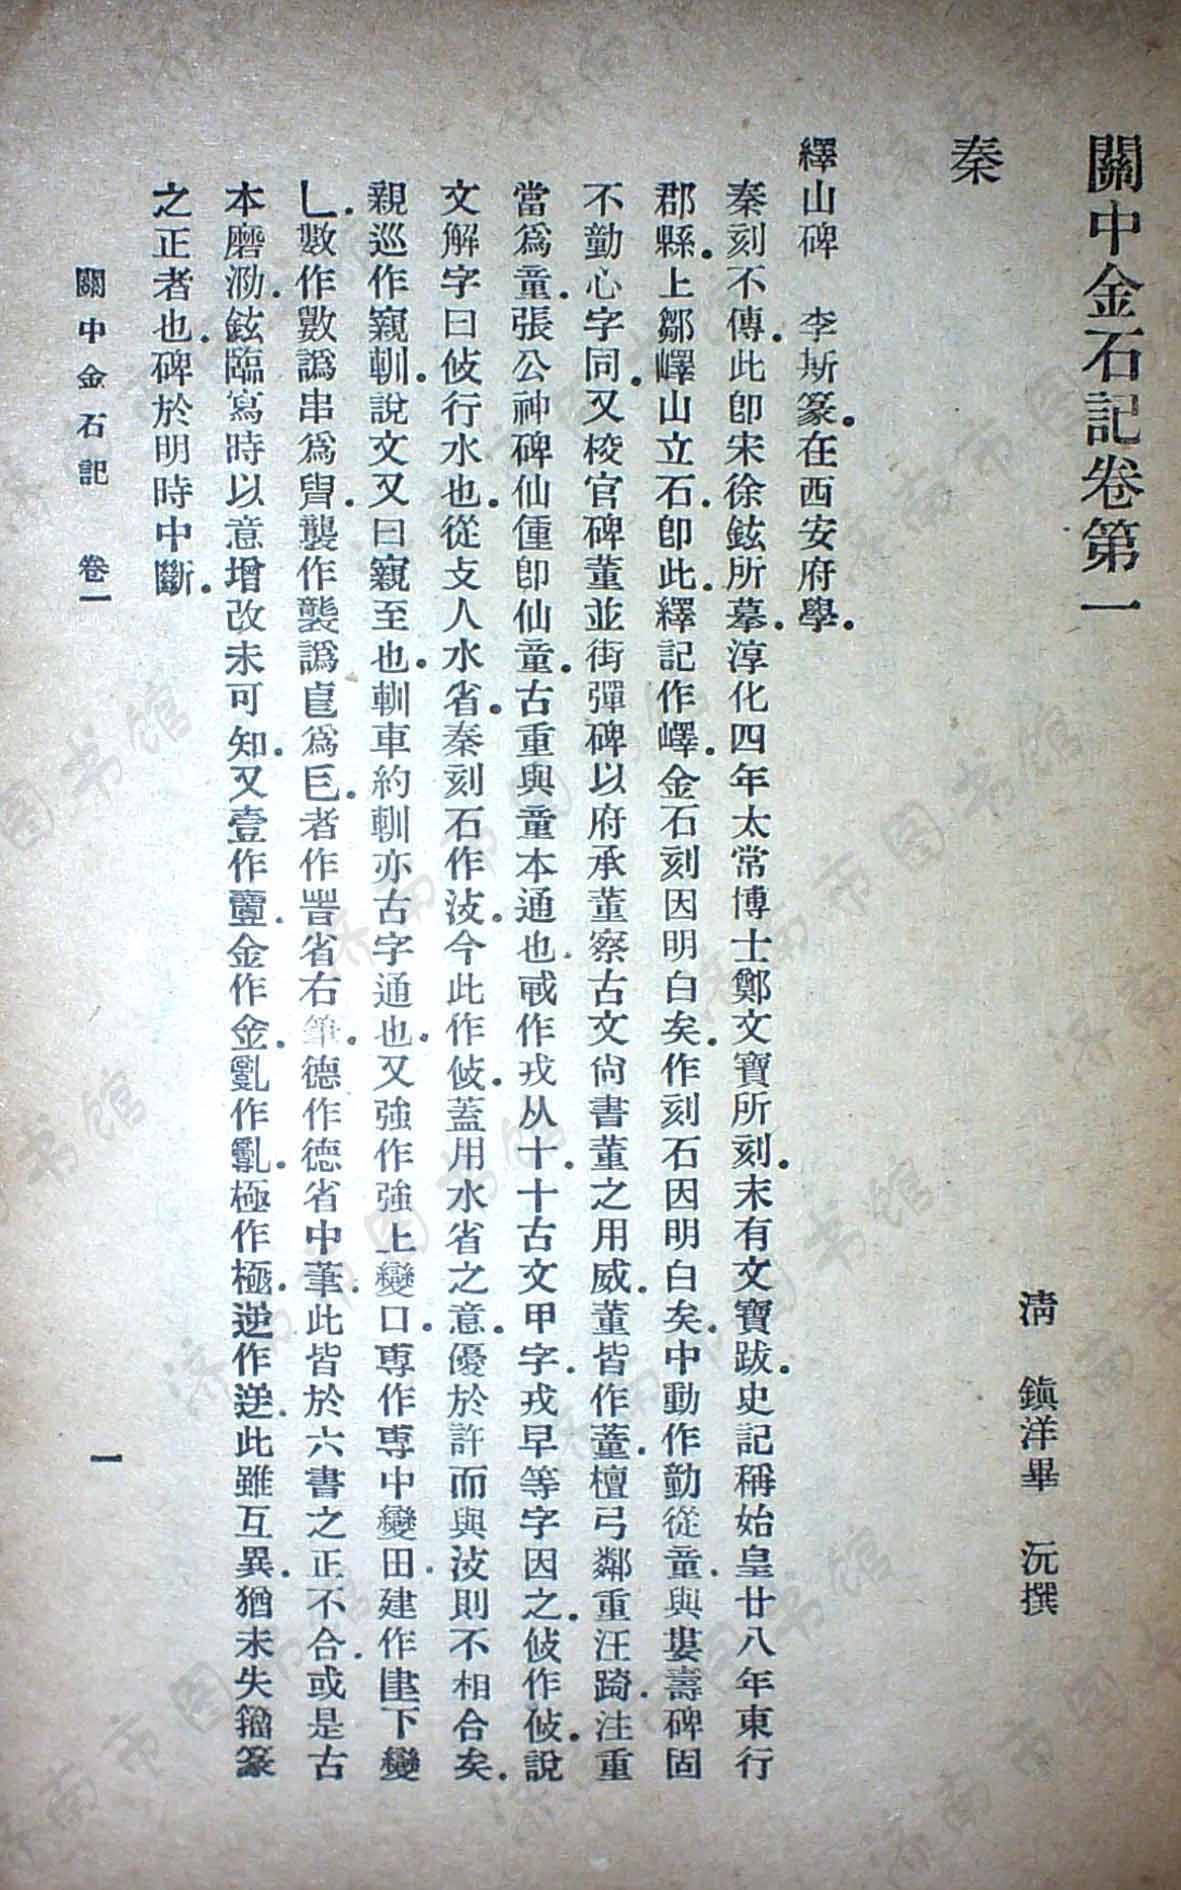 關中金石記卷第一
清 鎭洋畢 沅撰
秦
繹山碑 李斯篆。在西安府學。
秦刻不傳。此卽宋徐鉉所摹。淳化四年太常博士鄭文寶所刻。末有文寶跋。史記稱始皇廿八年東行
郡縣。上鄒嶧山立石。卽此。繹記作嶧。金石刻因明白矣。作刻石因明白矣。中動作勭從童。與婁壽碑固
不勭心字同。又棱官碑董並街彈碑以府承董察古文尙書董之用威。董皆作蕫。檀弓鄰重汪踦。注重
當爲童。張公神碑仙僮卽仙童。古重與童本通也。戰作戎从十。十古文甲字。戎早等字因之。攸作攸。說
文解字曰攸行水也。從攴人水省。秦刻石作汥。今此作攸。蓋用水省之意。優於許而與汥則不相合矣。
親巡作窺軐。說文又曰窺至也。軐車約軐亦古字通也。又強作強上變口。專作専中變田。建作建下變
乚。數作數譌串爲𦥔。襲作襲譌𥃭爲巨。者作𣥐省右筆。德作德省中筆。此皆於六書之正不合。或是古
本磨泐。鉉臨寫時以意增改未可知。又壹作壹。金作金。亂作亂。極作極。逆作逆。此雖互異。猶未失籀篆
之正者也。碑於明時中斷。
關中金石記 卷一
一
济南市图书馆